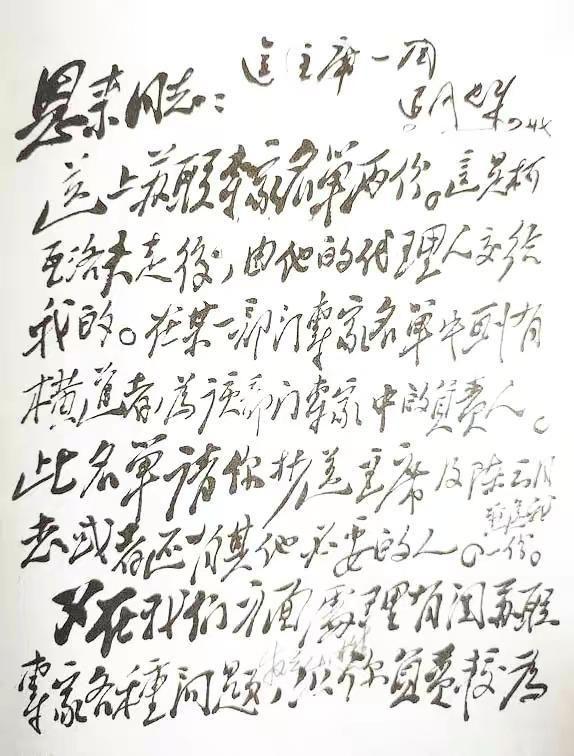 送主席一阅
恩来同志：
送上苏联专家名单两份。这是柯
瓦洛夫走後，由他的代理人交给
我的。在某一部门专家名单中划有
横道者，为该部门专家中的负责人。
此名单请你抄送主席及陈云同
志或者还有其他必要的人。
一份。
又在我们方面处理有关苏联
专家各种问题，你负责较为